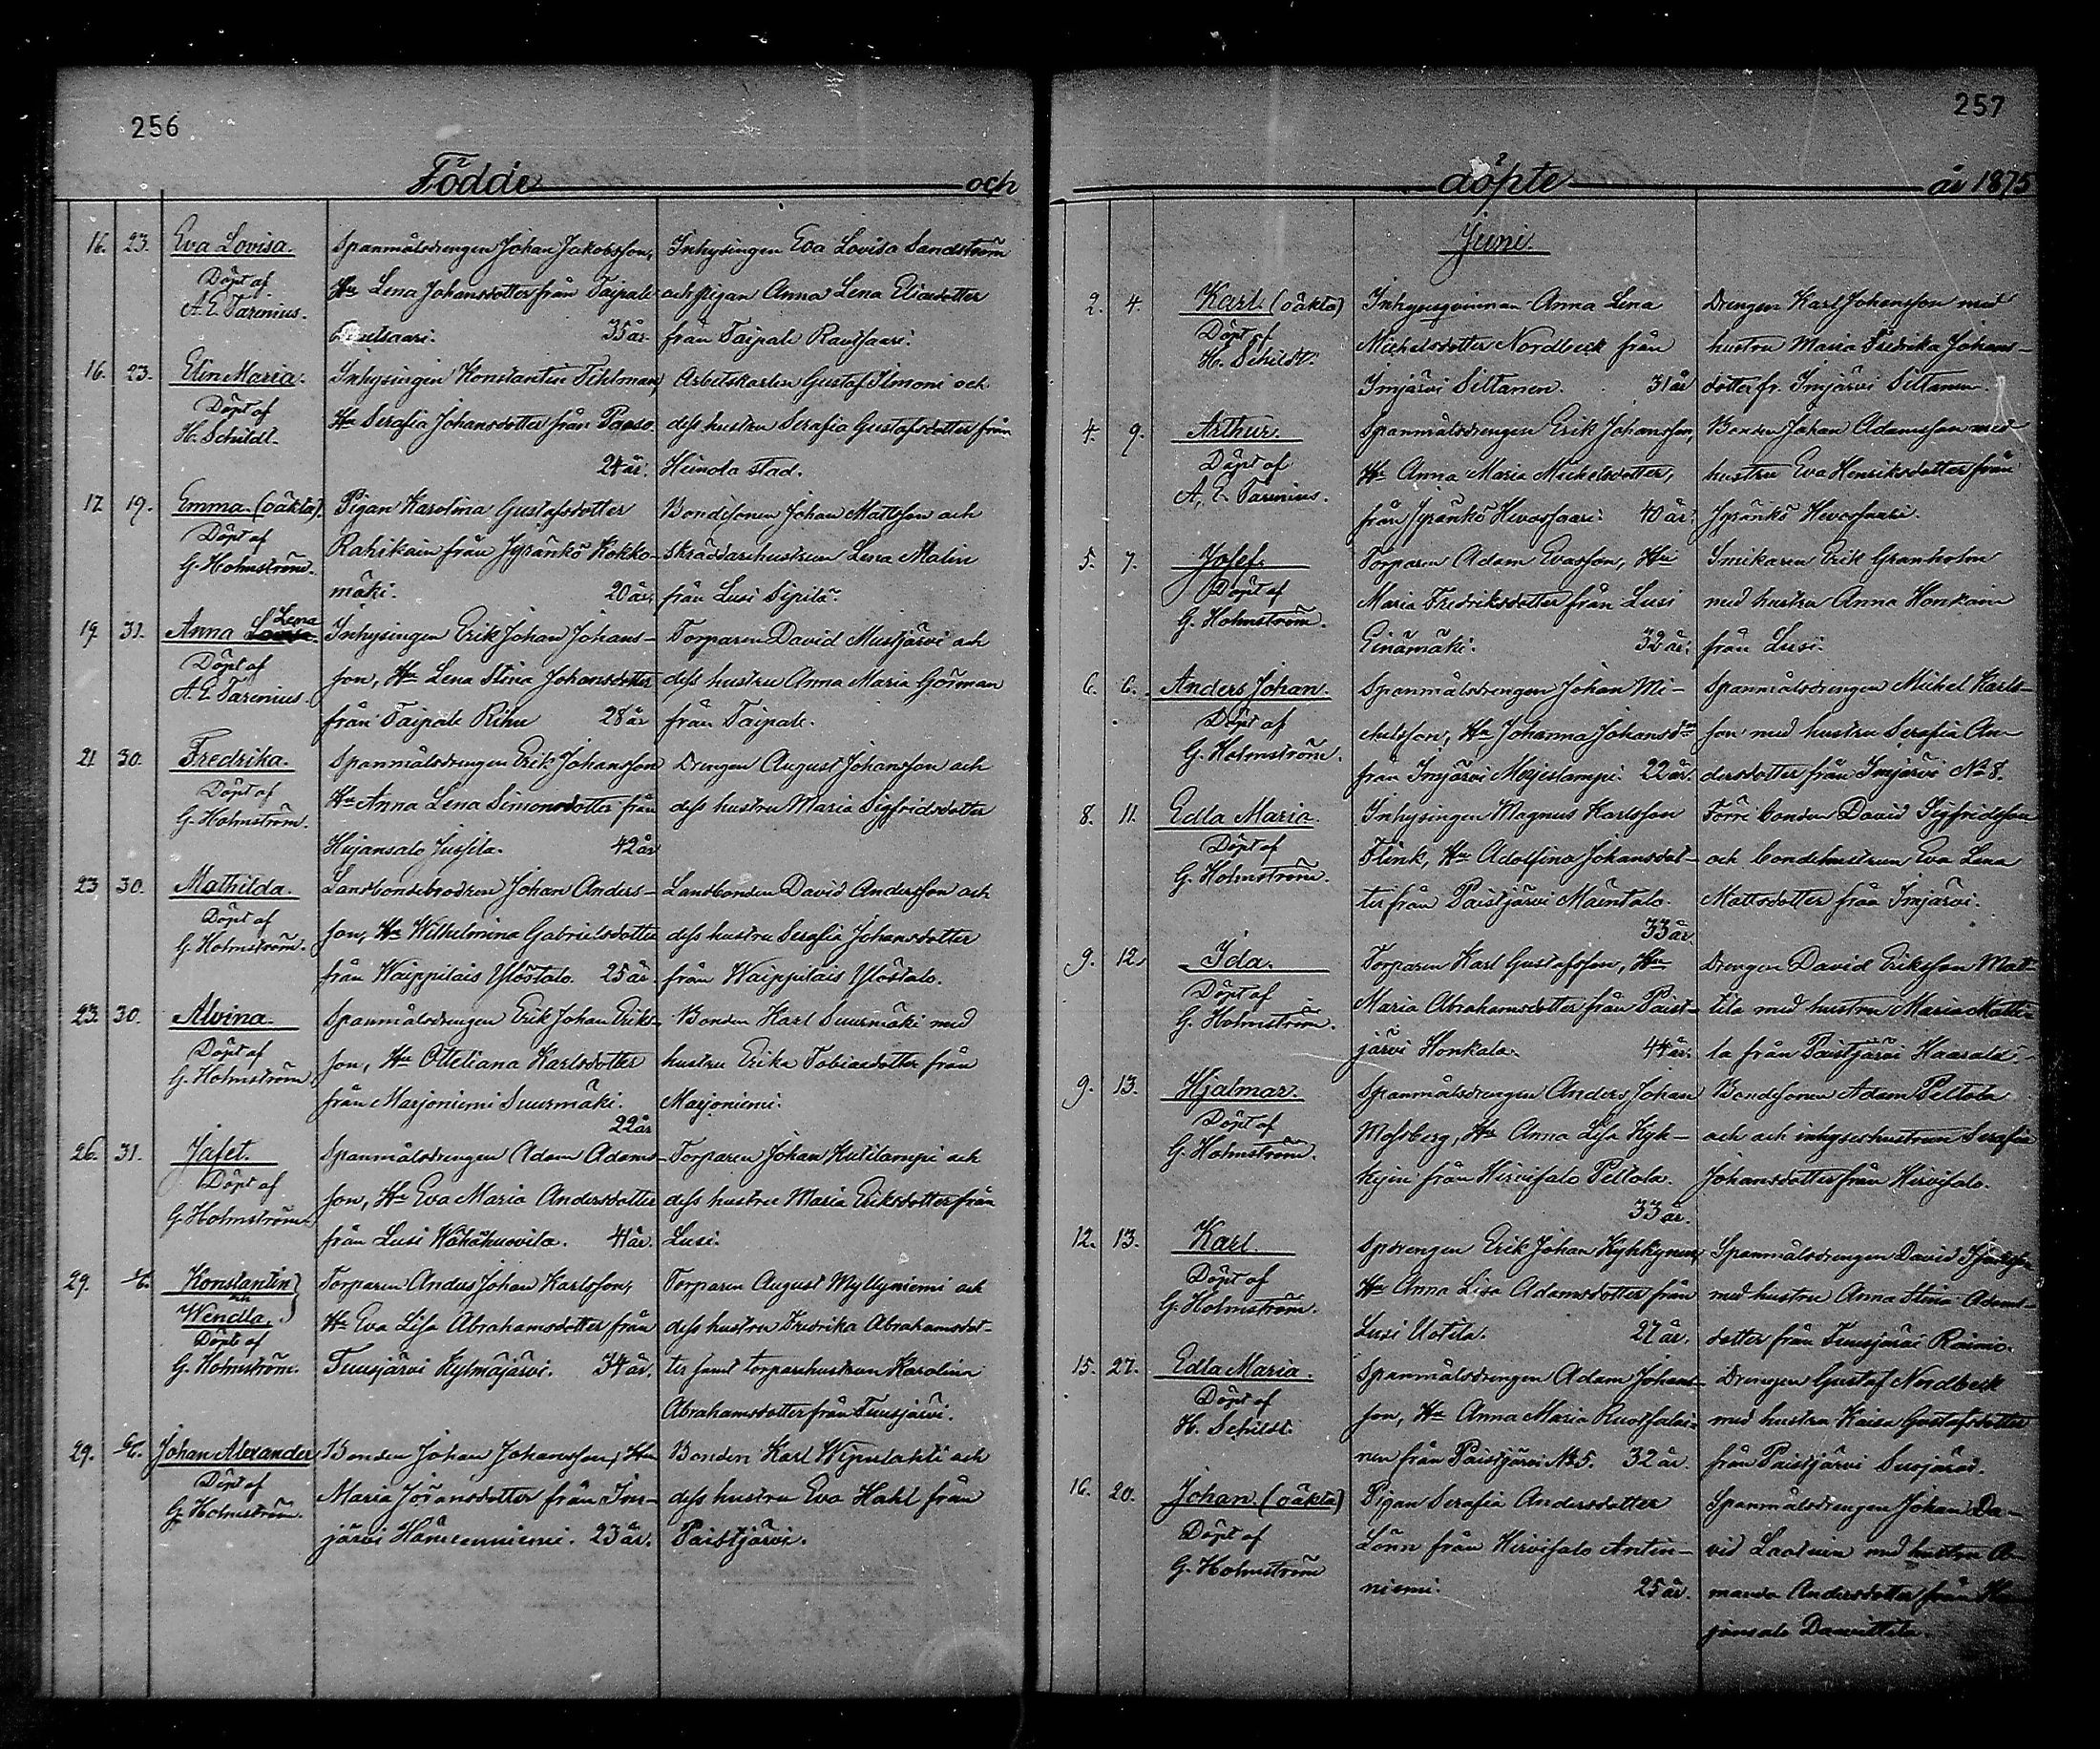 256
Födde och
16. 23. Eva Lovisa. Spanmålsdrengen Johan Jakobsson, Inhysingen Eva Lovisa Sandström
Döpt af Hu Lena Johansdotter från Taipale och pigan Anna Lena Eliasdotter
A. E. Tarenius. 35 år. från Taipale Rautsaari.
16. 23. Elin Maria. Inhysingen Konstantin Tihlman, Arbetskarlen Gustaf Ilmoni och
Döpt af Hu Serafia Johansdotter från Paaso dess hustru Serafia Gustafsdotter från
H. Schildt. 24 år. Heinola stad.
17. 19. Emma. (oäkta). Pigan Karolina Gustafsdotter Bondesonen Johan Mattsson och
Döpt af Rahikain från Jyränkö Kokko- skräddarehustrun Lena Malin
G. Holmström. mäki. 20 år. från Lusi Sipilä.
19. 31. Anna Lena Inhysingen Erik Johan Johans- Torparen David Mustjärvi och
Döpt af son, Hu Lena Stina Johansdotter dess hustru Anna Maria Görman
A. E. Tarenius. från Taipale Rihu 28 år från Taipale.
21 30. Fredrika. Spanmålsdrengen Erik Johansson Drengen August Johansson och
Döpt af Hu Anna Lena Simonsdotter från dess hustru Maria Sigfridsdotter
G. Holmström. Hujansalo Jussila. 42 år
23 30. Mathilda. Landbondebrodren Johan Anders- Landbonden David Andersson och
Döpt af son, Hu Wilhelmina Gabrielsdotter dess hustru Serafia Johansdotter
G. Holmström. från Waippilais Ylöstalo. 25 år. från Waippilais Ylöstalo.
23. 30. Alvina. Spanmålsdrengen Erik Johan Eriks- Bonden Karl Suurmäki med
Döpt af son, Hu Otteliana Karlsdotter hustru Erika Tobiasdotter från
G. Holmström. från Marjoniemi Suurmäki. Marjoniemi.
22 år
26. 31. Jafet. Spanmålsdrengen Adam Adams- Torparen Johan Kutilampi och
Döpt af son, Hu Eva Maria Andersdotter dess hustru Maria Eriksdotter från
G. Holmström. från Lusi Wähähuovila. 41 år. Lusi.
29. Konstantin Torparen Anders Johan Karlsson, Torparen August Myllyniemi och
och
Wendla. Hu Eva Lisa Abrahamsdotter från dess hustru Fredrika Abrahamsdot-
Döpte af
G. Holmström. Tuusjärvi Kylmäjärvi. 34 år. ter samt torparehustrun Karolina
Abrahamsdotter från Tuusjärvi.
29. Johan Alexander Bonden Johan Johansson, Hu Bonden Karl Wipulahti och
Döpt af Maria Göransdotter från Im- dess hustru Eva Hahl från
G. Holmström. järvi Hämeenniemi. 23 år. Paistjärvi.
257
döpte år 1875
Juni.
2. 4. Karl. (oäkta) Inhysesqvinnan Anna Lena Drengen Karl Johansson med
Döpt af Michelsdotter Nordbeck från hustru Maria Fredrika Johans-
H. Schildt. Imjärvi Siltanen. 31 år dotter fr. Imjärvi Siltanen.
4. 9. Arthur. Spanmålsdrengen Erik Johansson, Bonden Johan Adamsson med
Döpt af Hu Anna Maria Michelsdotter, hustru Eva Henriksdotter från
A. E. Tarenius. från Jyränkö Hevossaari. 40 år. Jyränkö Hevossaari.
5. 7. Josef. Torparen Adam Evasson, Hu Smikaren Erik Granholm
Döpt af Maria Fredriksdotter från Lusi med hustru Anna Honkain
G. Holmström. Einämäki. 32 år. från Lusi.
6. 6. Anders Johan. Spanmålsdrengen Johan Mi- Spanmålsdrengen Michel Karls-
Döpt af chelsson, Hu Johanna Johansdr son med hustru Serafia An-
G. Holmström. från Imjärvi Myjeslampi. 22 år. dersdotter från Imjärvi No 8.
8. 11. Edla Maria. Inhysingen Magnus Karlsson Förre bonden David Sigfridsson
Döpt af Flink, Hu Adolfina Johansdot- och bondehustrun Eva Lena
G. Holmström. ter från Paistjärvi Mäentalo. Mattsdotter från Imjärvi.
33 år.
9. 12. Ida. Torparen Karl Gustafsson, Hu Drengen David Eriksson Mat-
Döpt af Maria Abrahamsdotter från Paist- tila med hustru Maria Matti-
G. Holmström. järvi Honkala. 44 år. la från Paistjärvi Haarala.
9. 13. Hjalmar. Spanmålsdrengen Anders Johan Bondesonen Adam Peltola
Döpt af Mossberg, Hu Anna Lisa Kyk- och och inhyseshustrun Serafia
G. Holmström. kyin från Hirvisalo Peltola. Johansdotter från Hirvisalo.
33 år.
12. 13. Karl. Spdrengen Erik Johan Kyhkynen, Spanmålsdrengen David
Döpt af Hu Anna Lisa Adamsdotter från med hustru Anna Stina Adams-
G. Holmström. Lusi Uotila. 27 år. dotter från Tuusjärvi Raimio.
15. 27. Edla Maria. Spanmålsdrengen Adam Johans- Drengen Gustaf Nordbeck
Döpt af son, Hu Anna Maria Ruotsalai- med hustru Kaisa Gustafsdotter
H. Schildt. nen från Paistjärvi No 5. 32 år. från Paistjärvi Susjärvi.
16. 20. Johan. (oäkta) Pigan Serafia Andersdotter Spanmålsdrengen Johan Da-
Döpt af Lönn från Hirvisalo Antin- vid med hustru A-
G. Holmström niemi. 25 år. manda Andersdotter från Hu-
jansalo Dawittila.